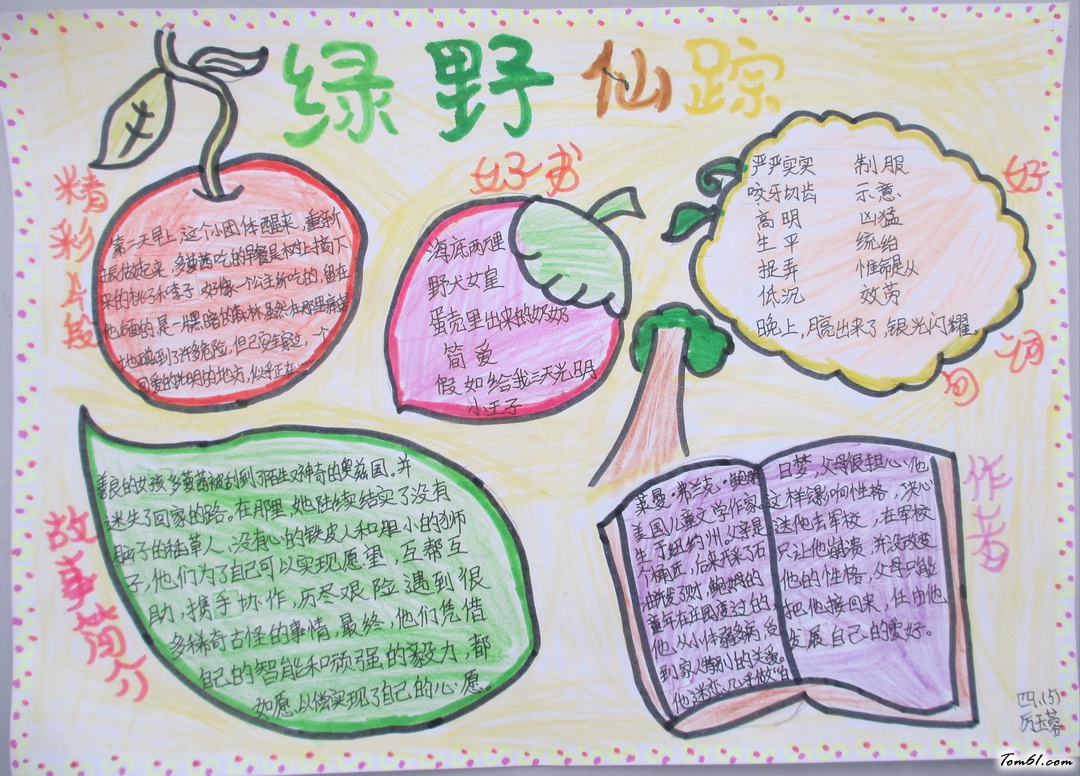 绿野仙踪
精彩片段
第二天早上,这个小团体醒来,重新
来的桃子和李子,好像一个公主
地碰到了许多危险,但
可爱的光明的地方,似乎正在
好书
海底两万里
野犬女皇
蛋壳里出来的奶奶
简爱
假如给我三天光明
小王子
好词句
严严实实 制服
咬牙切齿 示意
高明 凶猛
生平 统治
捉弄 惟命是从
低沉
晚上,月亮出来了,银光闪耀。
故事简介
善良的女孩多萝茜被刮到了陌生又神奇的奥兹国,并
迷失了回家的路。在那里,她陆续结实了没有
脑子的稻草人、没有心的铁皮人和胆小的狮
子,他们为了自己可以实现愿望,互帮互
助,携手协作,历尽艰险,遇到很
多稀奇古怪的事情,最终,他们凭借
自己的智能和顽强的毅力,都
如愿以偿实现了自己的心愿。
作者
莱曼·弗兰克·鲍姆
美国儿童文学作家
生于纽约州,父亲是
个桶匠,后来开采了石
油发了财,鲍姆的
童年在庄园度过的,
他从小体弱多病,受
到家人特别的关爱。
他迷恋
日梦,父母很担心他
这样会影响性格,决心
送他去军校,在军校
只让他崩溃,并没改变
他的性格,父母只能
把他接回来,任由他
发展自己的爱好。
四.(5)
厉玉蓉
Tom61.com